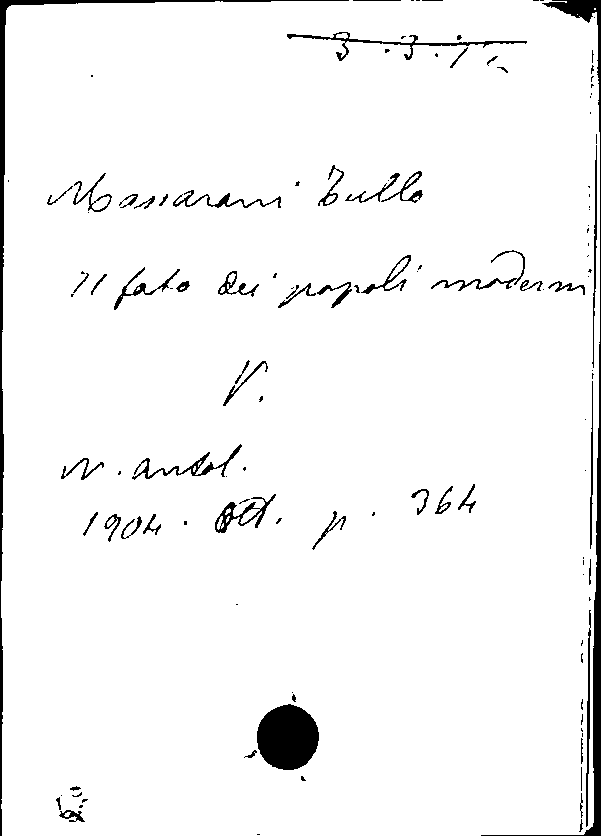 3.3.1
Massarani Tullo
Il fato dei popoli moderni
V.
N. antol.
1904. Ott. p. 364